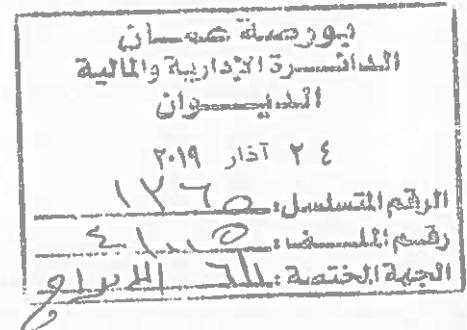 بورصة عمان
الدائرة الإدارية والمالية
الديوان
٢٤ آذار ٢٠١٩
الرقم المتسلسل: ١٢٦٥
رقم الملف:
الجهة المختصة: